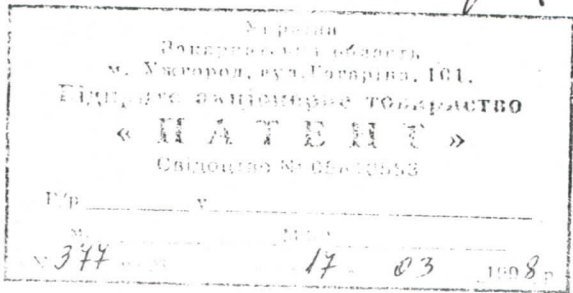 Україна
Закарпатська область
м. Ужгород, вул. Гагаріна, 101.
Відкрите акціонерне товариство
« П А Т Е Н Т »
Свідоцтво №
Р/р у
м.
377 17 03 1998 р